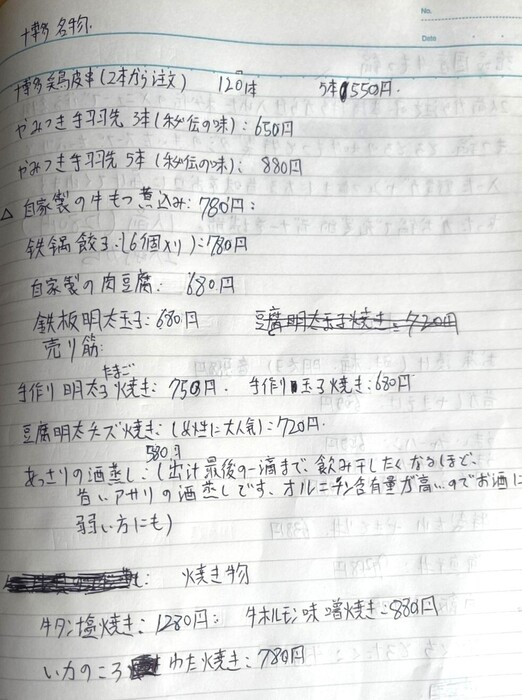 No.
Date
博多名物.
博多美鳥皮串(2本から注文) 120円1本 5本550円.
やみつき手羽先 3本(秘伝の味):650円
やみつき手羽先 5本(秘伝の味): 880円
△ 自家製の牛もつ煮込み:780円:
鉄鍋餃子:(6個入り):780円
自家製の肉豆腐: 680円
鉄板明太玉子:680円 豆腐明太玉子焼き:720円
売り筋:
たまご
手作り明太子焼き:750円. 手作り玉子焼き:680円
豆腐明太チズ焼き:(女性に大人気):720円.
580円
あっさりの酒蒸し:(出汁最後の一滴まで、飲み干したくなるほで、
旨いアサリの酒蒸しです、オルニチン含有量が高いのでお酒に
弱い方にも)
焼き物
牛タン塩焼き:1280円: 牛ホルモン味噌焼き:880円
いカのころ わた焼き:780円